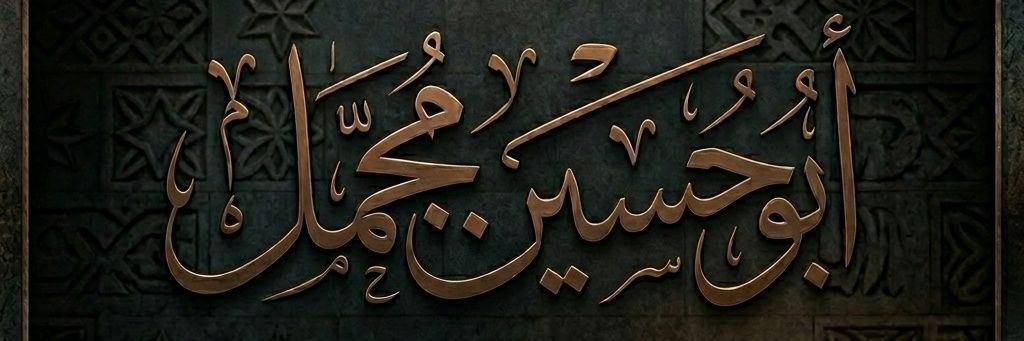 أَبُو حُسين مُجمَّل